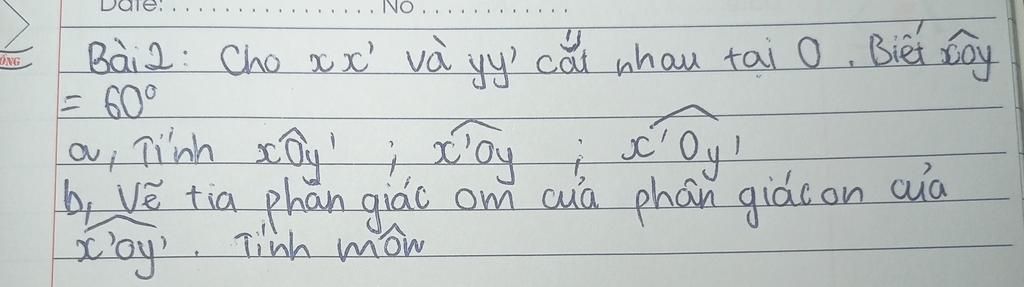 Date: No
ÔNG
Bài 2: Cho xx' và yy' cắt nhau tại O. Biết xôy
= 60°
a, Tính xÔy' ; x'Oy ; x'Oy'
b, Vẽ tia phân giác om của phân giác on của
x'oy'. Tính môn